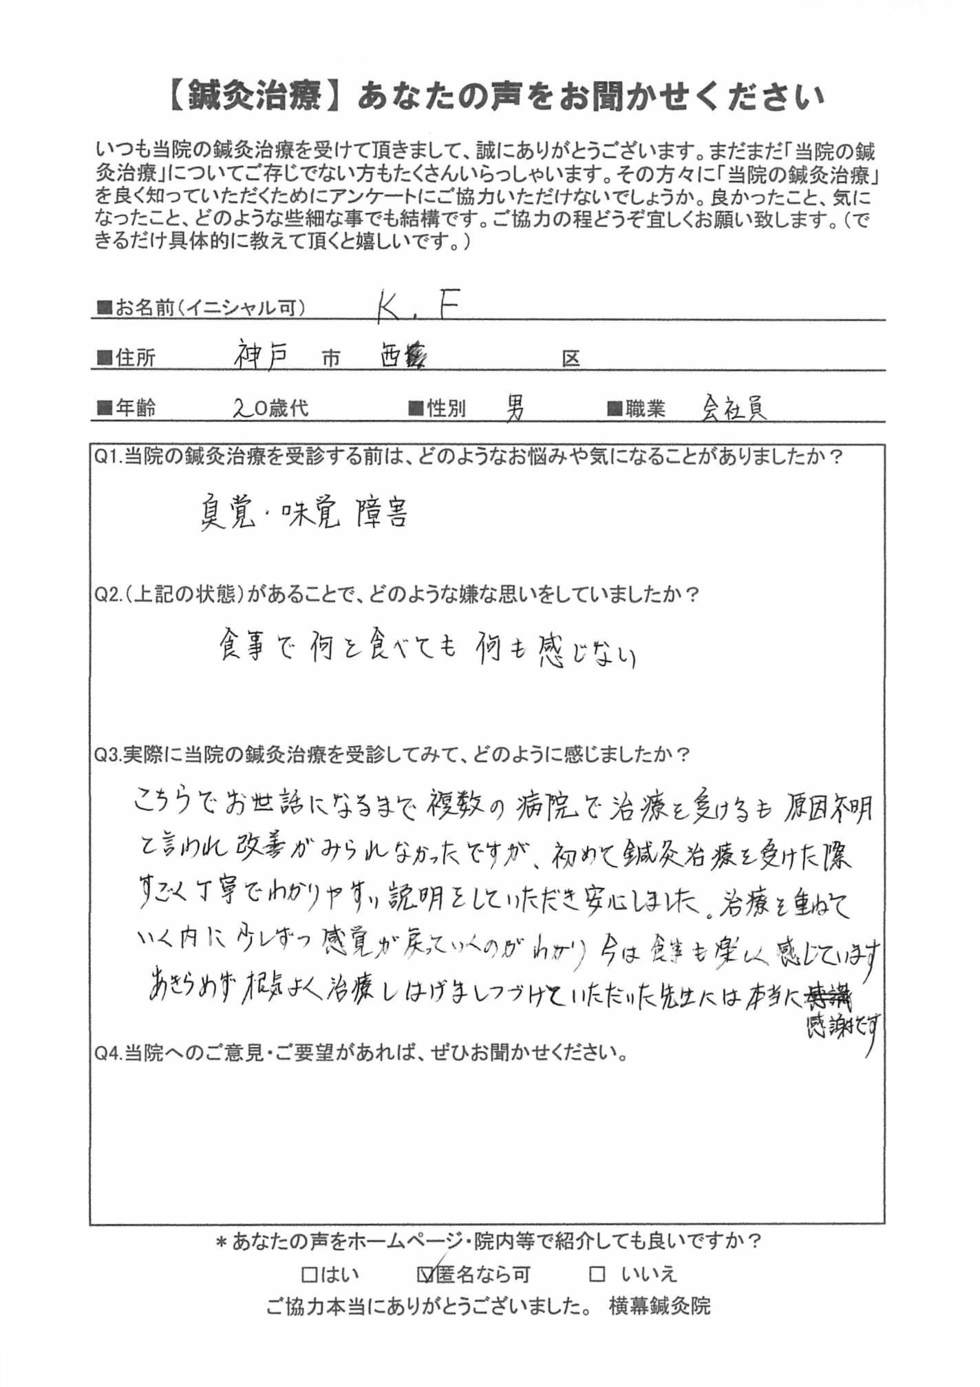 【鍼灸治療】あなたの声をお聞かせください
いつも当院の鍼灸治療を受けて頂きまして、誠にありがとうございます。まだまだ「当院の鍼
灸治療」についてご存じでない方もたくさんいらっしゃいます。その方々に「当院の鍼灸治療」
を良く知っていただくためにアンケートにご協力いただけないでしょうか。良かったこと、気に
なったこと、どのような些細な事でも結構です。ご協力の程どうぞ宜しくお願い致します。（で
きるだけ具体的に教えて頂くと嬉しいです。）
■お名前（イニシャル可） K.F
■住所 神戸 市 西 区
■年齢 20歳代 ■性別 男 ■職業 会社員
Q1.当院の鍼灸治療を受診する前は、どのようなお悩みや気になることがありましたか？
臭覚・味覚 障害
Q2.（上記の状態）があることで、どのような嫌な思いをしていましたか？
食事で 何を食べても 何も感じない
Q3.実際に当院の鍼灸治療を受診してみて、どのように感じましたか？
こちらでお世話になるまで 複数の 病院で 治療を受けるも 原因不明
と言われ 改善がみられなかったですが、初めて鍼灸治療を受けた際
すごく丁寧でわかりやすい説明をしていただき安心しました。治療を重ねて
いく内に 少しずつ 感覚が戻っていくのがわかり 今は食事も楽しく感じています
あきらめず根気よく治療しはげましつづけていただいた先生には本当に
感謝です
Q4.当院へのご意見・ご要望があれば、ぜひお聞かせください。
＊あなたの声をホームページ・院内等で紹介しても良いですか？
□はい ☑匿名なら可 □ いいえ
ご協力本当にありがとうございました。 横幕鍼灸院